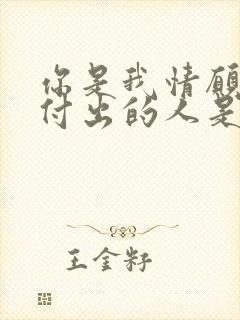 你是我情愿
付出的人是
王金籽